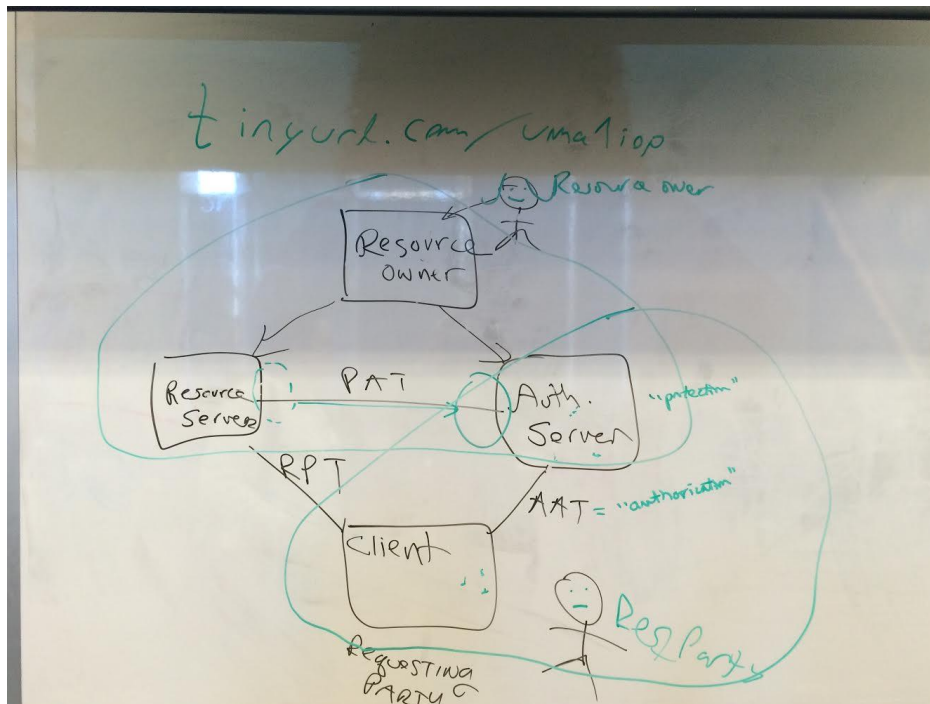 tinyurl.com/uma1iop
Resource ower
Resource
owner
Resource
Server
PAT
Auth.
Server
"protection"
RPT
AAT = "authorization"
Client
Req Party
REQUESTING
PARTY